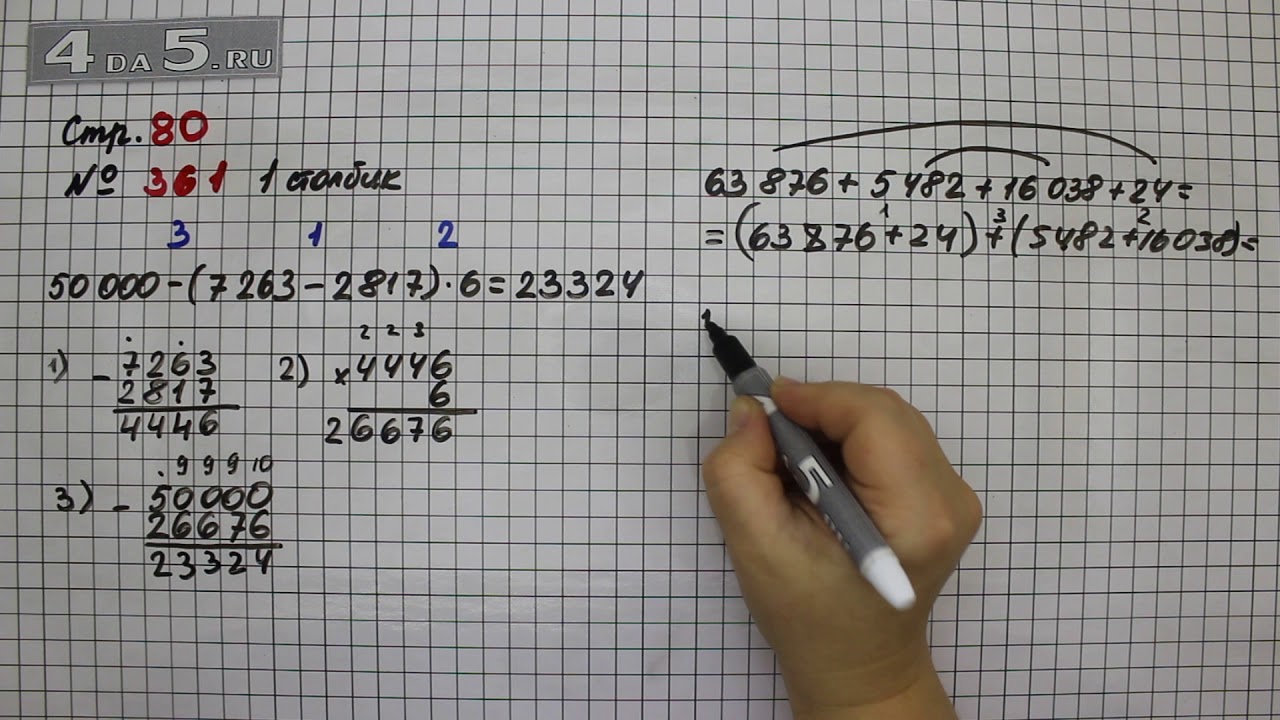 4 DA 5.RU
Стр. 80
№ 361 1 столбик
3 1 2
50 000 - (7 263 - 2 817) · 6 = 23324
1) - 7263
2817
4446
2 2 3
2) × 4446
6
26676
. 9 9 9 10
3) - 50000
26676
23324
63 876 + 5 482 + 16 038 + 24 =
1 3 2
= (63 876 + 24) + (5 482 + 16 038) =
5